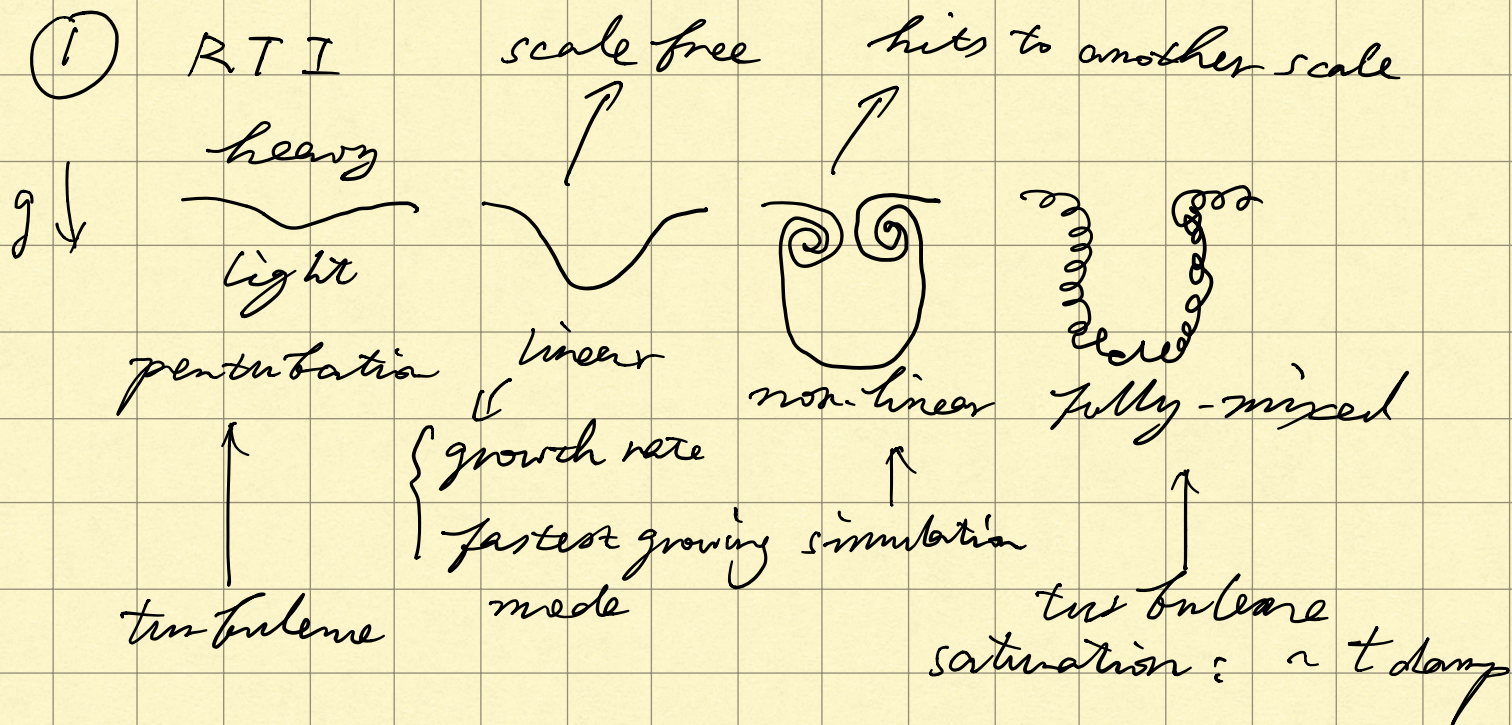 ① RTI scale free hits to another scale
heavy
g ↓
light
perturbation linear non-linear fully-mixed
growth rate
fastest growing mode simulation
turbulence turbulence
saturation : ~ t damp